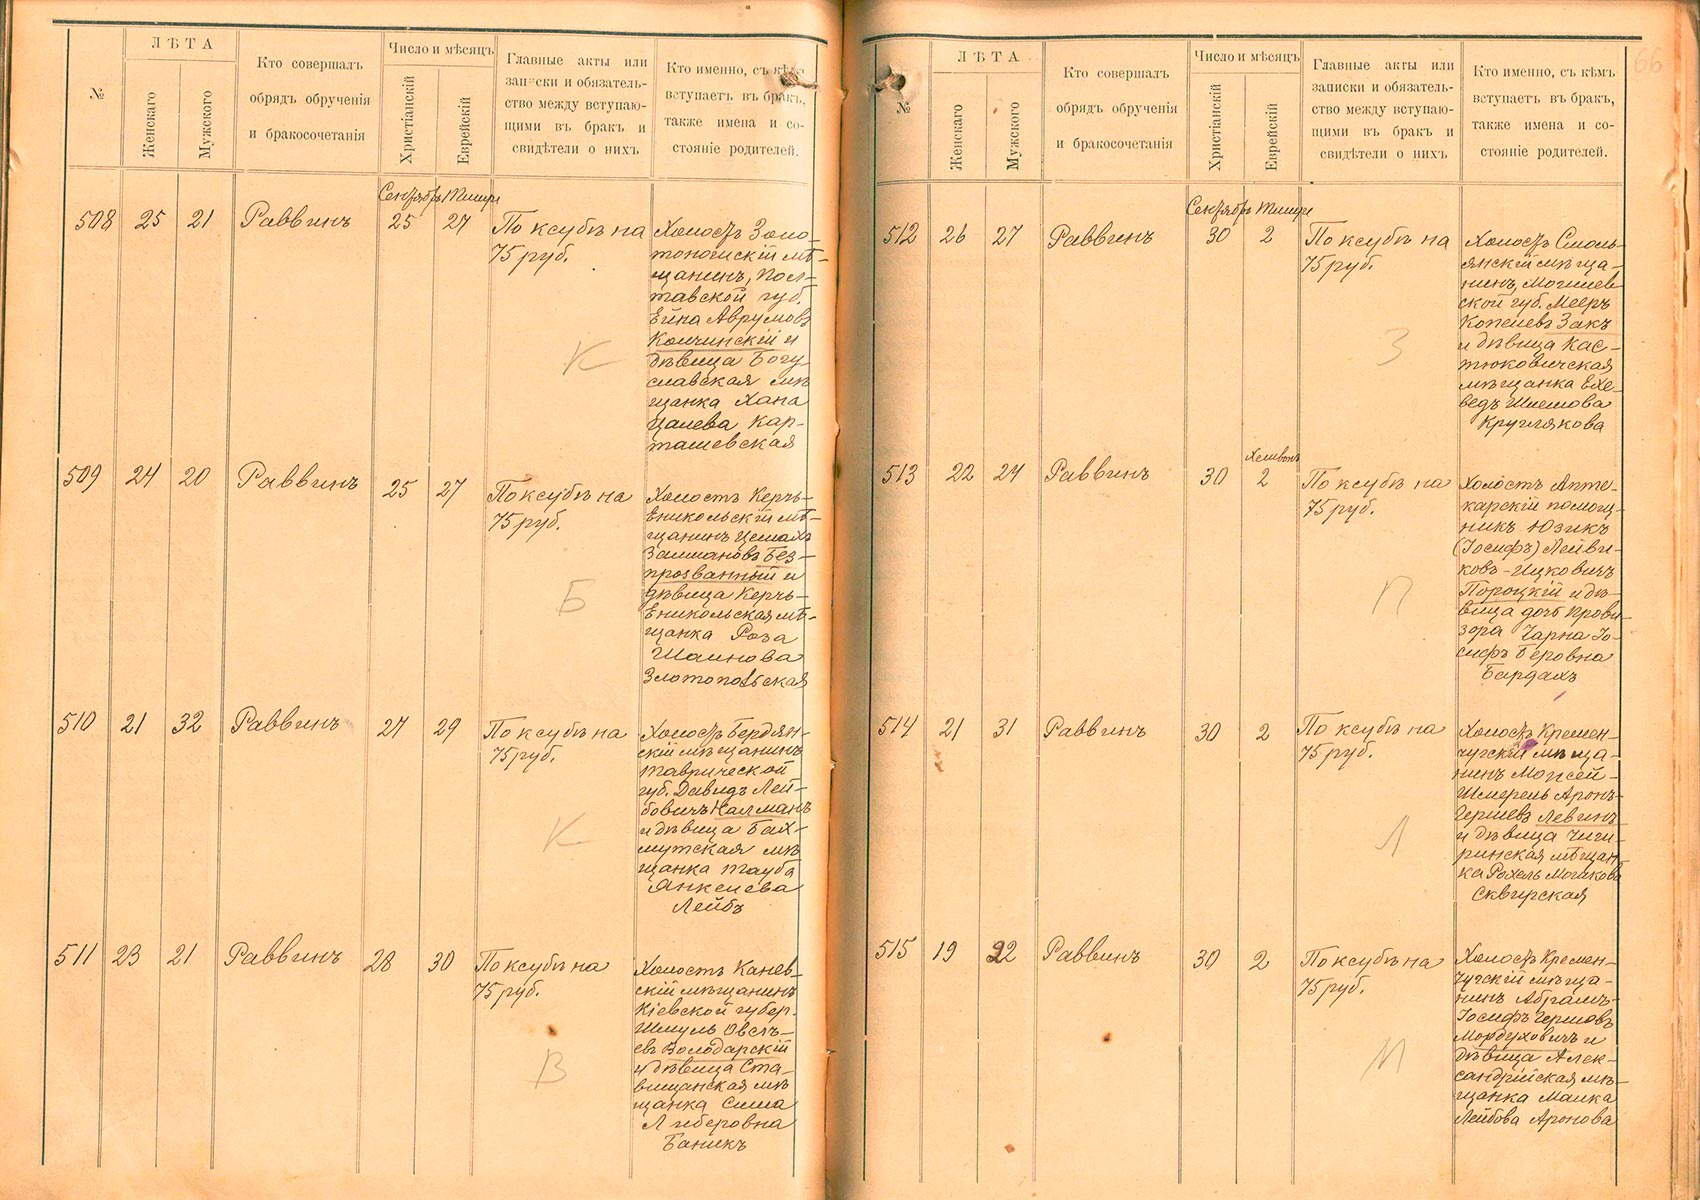 №
ЛѢТА
Женскаго
Мужского
Кто совершалъ
обрядъ обрученія
и бракосочетанія
Число и мѣсяцъ
Христіанскій
Еврейскій
Главные акты или
записки и обязатель-
ство между вступаю-
щими въ бракъ и
свидѣтели о нихъ
Кто именно, съ кѣмъ
вступаетъ въ бракъ,
также имена и со-
стояніе родителей.
Сентябрь Тишри
508 25 21 Раввинъ 25 27
По ксубѣ на
75 руб.
Холостъ Золо-
тоношскій мѣ-
щанинъ, Пол-
тавской губ.
Аврумовъ
Колчинскій и
дѣвица Богу-
славская мѣ
щанка Хана
Цалева Кар-
ташевская
К
509 24 20 Раввинъ 25 27
По ксубѣ на
75 руб.
Холостъ Керчь-
Еникольскій мѣ-
щанинъ Цемахъ
Залмановъ Без-
прозванный и
дѣвица Керчь-
Еникольская мѣ-
щанка Роза
Шаинова
Златопольская
Б
510 21 32 Раввинъ 27 29
По ксубѣ на
75 руб.
Холостъ Бердян-
скій мѣщанинъ
Таврической
губ. Давидъ Лей-
бовичъ Калманъ
и дѣвица Бах-
мутская мѣ
щанка Тауба
Янкелева
Лейбъ
К
511 23 21 Раввинъ 28 30
По ксубѣ на
75 руб.
Холостъ Канев-
скій мѣщанинъ
Кіевской губер.
Шмуль Овсѣ-
евъ Володарскій
и дѣвица Ста-
вищанская мѣ
щанка Сима
Либеровна
Баникъ
В
66
№
ЛѢТА
Женскаго
Мужского
Кто совершалъ
обрядъ обрученія
и бракосочетанія
Число и мѣсяцъ
Христіанскій
Еврейскій
Главные акты или
записки и обязатель-
ство между вступаю-
щими въ бракъ и
свидѣтели о нихъ
Кто именно, съ кѣмъ
вступаетъ въ бракъ,
также имена и со-
стояніе родителей.
Сентябрь Тишри
512 26 27 Раввинъ 30 2
По ксубѣ на
75 руб.
Холостъ Смоль-
янскій мѣща-
нинъ, Могилев
ской губ. Мееръ
Копелевъ Закъ
и дѣвица Кас-
тюковичская
мѣщанка Ехе-
ведъ Шлемова
Круглякова
З
Хешвонъ
513 22 24 Раввинъ 30 2
По ксубѣ на
75 руб.
Холостъ Апте-
карскій помощ-
никъ Юзикъ
(Іосифъ) Лейви-
ковъ-Ицковичъ
Пороцкій и дѣ-
вица дочь прови-
зора Чарна Іо-
сифъ Беровна
Бардахъ
П
514 21 31 Раввинъ 30 2
По ксубѣ на
75 руб.
Холостъ Кремен-
чугскій мѣща-
нинъ Моисей-
Шмерель Аронъ-
Гершевъ Левинъ
и дѣвица Чиги-
ринская мѣщан-
ка Рохель
Сквирская
Л
515 19 22 Раввинъ 30 2
По ксубѣ на
75 руб.
Холостъ Кремен-
чугскій мѣща-
нинъ Абрамъ-
Іосифъ Гершовъ
Мордуховичъ и
дѣвица Алек-
сандрійская мѣ-
щанка Малка
Лейбова Аронова
М